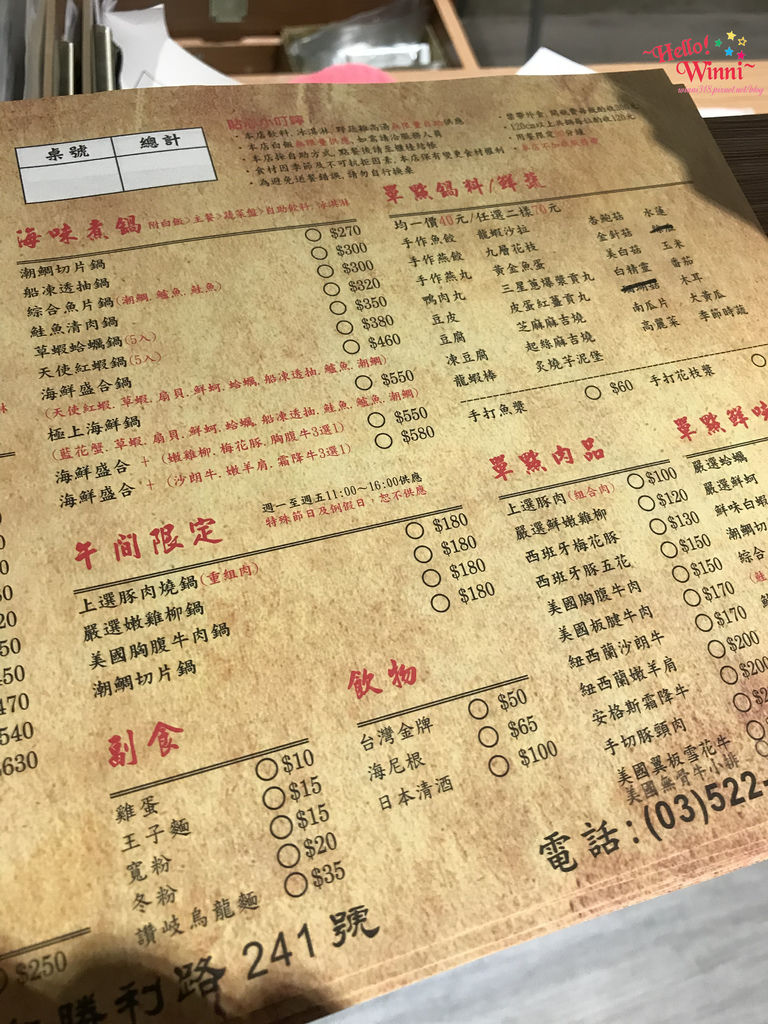 ~Hello!
Winni~
winni318.pixnet.net/blog
桌號 總計
貼心小叮嚀
・本店飲料, 冰淇淋, 野蔬雞高湯無限量自助供應
・本店白飯無限量供應, 如需請洽服務人員
・本店採自助方式, 點餐後請至櫃檯結帳
・食材因季節及不可抗拒因素, 本店保有變更食材權利
・為避免送餐錯誤, 請勿自行換桌
・120cm以上共鍋每位酌收120元
・用餐限定90分鐘
・本店不加收服務費
海味煮鍋 附白飯>主餐>蔬菜盤>自助飲料, 冰淇淋
潮鯛切片鍋 $270
船凍透抽鍋 $300
綜合魚片鍋(潮鯛, 鱸魚, 鮭魚) $300
鮭魚清肉鍋 $320
草蝦蛤蠣鍋(5入) $350
天使紅蝦鍋(5入) $380
海鮮盛合鍋 $460
(天使紅蝦, 草蝦, 扇貝, 鮮蚵, 蛤蠣, 船凍透抽, 鮭魚, 鱸魚, 潮鯛)
極上海鮮鍋 $550
(藍花蟹, 草蝦, 扇貝, 鮮蚵, 蛤蠣, 船凍透抽, 鮭魚, 鱸魚, 潮鯛)
海鮮盛合 + (嫩雞柳, 梅花豚, 胸腹牛3選1) $550
海鮮盛合 + (沙朗牛, 嫩羊肩, 霜降牛3選1) $580
單點鍋料/鮮蔬
均一價40元/任選二樣70元
手作魚餃 龍蝦沙拉 杏鮑菇 水蓮
手作燕餃 九層花枝 金針菇
手作燕丸 黃金魚蛋 美白菇 玉米
鴨肉丸 三星蔥爆漿貢丸 白精靈 番茄
豆皮 皮蛋紅薑貢丸 木耳
豆腐 芝麻麻吉燒 南瓜片 大黃瓜
凍豆腐 起絲麻吉燒 高麗菜 季節時蔬
龍蝦棒 炙燒芋泥堡
手打魚漿 $60 手打花枝漿
午間限定 週一至週五11:00～16:00供應
特殊節日及例假日, 恕不供應
上選豚肉燒鍋(重組肉) $180
嚴選嫩雞柳鍋 $180
美國胸腹牛肉鍋 $180
潮鯛切片鍋 $180
單點肉品
上選豚肉(組合肉) $100
嚴選鮮嫩雞柳 $120
西班牙梅花豚 $130
西班牙豚五花 $150
美國胸腹牛肉 $150
美國板腱牛肉 $170
紐西蘭沙朗牛 $170
紐西蘭嫩羊肩 $200
安格斯霜降牛 $200
手切豚頸肉
美國翼板雪花牛
美國無骨牛小排
單點鮮味
嚴選蛤蠣
嚴選鮮蚵
鮮味白蝦
潮鯛切
綜合
副食
雞蛋 $10
王子麵 $15
寬粉 $15
冬粉 $20
讚岐烏龍麵 $35
飲物
台灣金牌 $50
海尼根 $65
日本清酒 $100
470
540
630
$250
電話:(03)522-
勝利路 241號